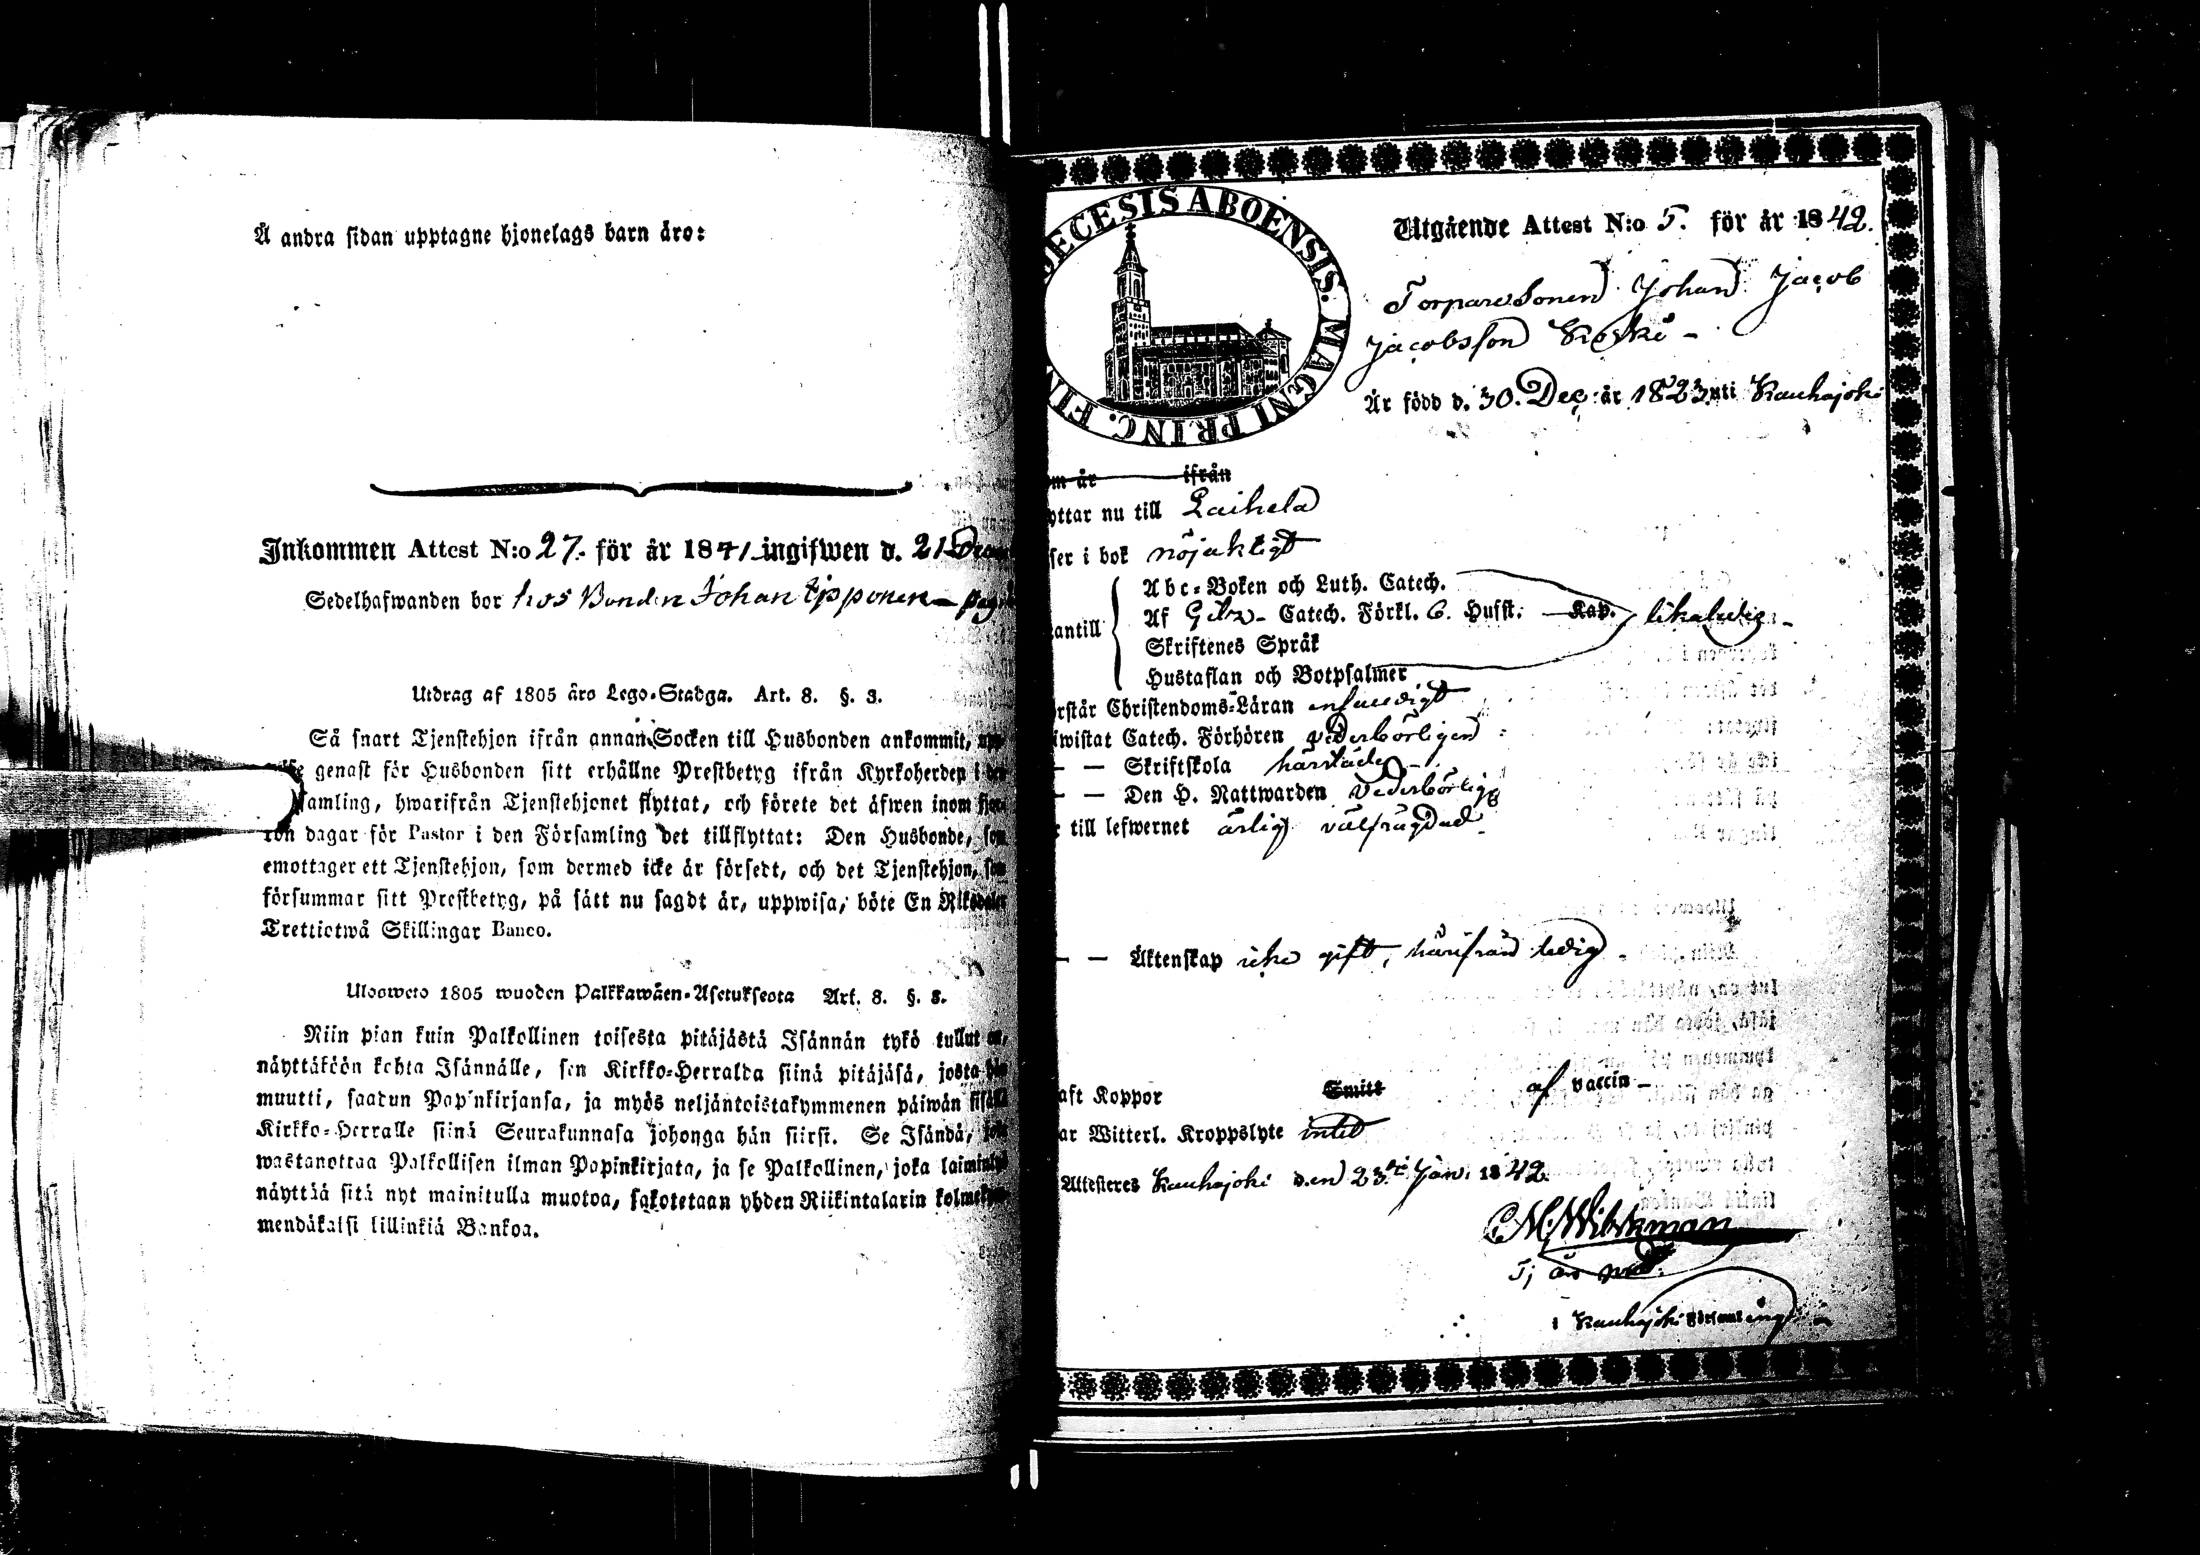 Å andra sidan upptagne hjonelags barn äro:
Inkommen Attest N:o 27. för år 1841 ingifwen d. 21
Sedelhafwanden bor hos Bonden Johan Ipponen
Utdrag af 1805 års Lego-Stadga. Art. 8. §. 3.
Så snart Tjenstehjon ifrån annan Socken till Husbonden ankommit,
genast för Husbonden sitt erhållne Prestbetyg ifrån Kyrkoherden i
samling, hwarifrån Tjenstehjonet flyttat, och förete det äfwen inom
ton dagar för Pastor i den Församling det tillflyttat: Den Husbonde, som
emottager ett Tjenstehjon, som dermed icke är försedt, och det Tjenstehjon, som
försummar sitt Prestbetyg, på sätt nu sagdt är, uppwisa, böte En Riksdaler
Trettiotwå Skillingar Banco.
Ulosweto 1805 wuoden Palkkawäen-Asetuksesta Art. 8. §. 3.
Niin pian kuin Palkollinen toisesta pitäjästä Isännän tykö tullut on,
näyttäköön kohta Isännälle, sen Kirkko-Herralda siinä pitäjäsä, josta hän
muutti, saadun Papinkirjansa, ja myös neljäntoistakymmenen päiwän sisällä
Kirkko-Herralle siinä Seurakunnasa johonga hän siirsi. Se Isändä, joka
wastanottaa Palkollisen ilman Papinkirjata, ja se Palkollinen, joka laiminlyö
näyttää sitä nyt mainitulla muotoa, sakotetaan yhden Riikintalarin kolmekym-
mendäkaksi killinkiä Bankoa.
DECESIS ABOENSIS. MAGNI PRINC. FIN
Utgående Attest N:o 5. för år 1842.
Torparesonen Johan Jacob
Jacobsson Koski –
Är född d. 30. Dec. år 1823 uti Kauhajoki
om år ifrån
yttar nu till Laihela
ser i bok nöjaktigt
antill
Abc-Boken och Luth. Catech.
Af Catech. Förkl. 6. Hufst. Kap. likaledes –
Skriftenes Språk
Hustaflan och Botpsalmer
rstår Christendoms-Läran enfaldigt
iwistat Catech. Förhören vederbörligen
— — Skriftskola härstädes –
— — Den H. Nattwarden Vederbörlig
till lefwernet ärlig välfrägdad.
— — Äktenskap icke gift, härifrån ledig –
aft Koppor Smitt af vaccin –
ar Witterl. Kroppslyte intet
Attesteres Kauhajoki den 23:de Jan: 1842.
i Kauhajoki Församling